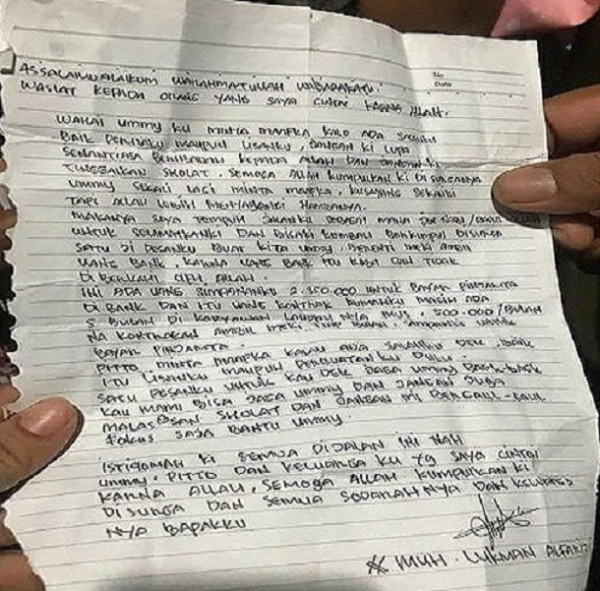 No
Date
ASSALAMUALAIKUM WARAHMATULLAH WABARAKATU.
WASIAT KEPADA ORANG YANG SAYA CINTAI KARNA ALLAH.
WAHAI UMMY KU MINTA MAAFKA KALO ADA SALAHKU
BAIK PERILAKU MAUPUN LISANKU, JANGAN KI LUPA
SENANTIASA BERIBADAH KEPADA ALLAH DAN JANGAN KI
TINGGALKAN SHOLAT. SEMOGA ALLAH KUMPULKAN KI DI SURGANYA
UMMY SEKALI LAGI MINTA MAAFKA, KUSAYANG SEKALIKI
TAPI ALLAH LEBIH MENYAYANGI HAMBANYA.
MAKANYA SAYA TEMPUH JALANKU SEBAGI
UNTUK SELAMATKANKI DAN BISAKI KEMBALI BERKUMPUL DISURGA
SATU JI PESANKU BUAT KITA UMMY, BERENTI MEKI AMBIL
UANG BANK, KARNA UANG BANK ITU RIBA DAN TIDAK
DI BERKAHI OLEH ALLAH.
INI ADA UANG SIMPANANKU 2.350.000 UNTUK BAYAR PINJAMTA
DI BANK DAN ITU UANG KONTRAK RUMAHKU MASIH ADA
5 BULAN DI 500.000/BULAN
NA KONTRAKAN AMBIL MEKI UNTUK
BAYAR PINJAMTA.
PITTO, MINTA MAAFKA KALAU ADA SALAHKU DEK, BAIK
ITU LISANKU MAUPUN PERBUATANKU DULU.
SATU PESANKU UNTUK KAU DEK JAGA UMMY BAIK-BAIK
KAU MAMI BISA JAGA UMMY DAN JANGAN JUGA
MALAS SHOLAT DAN JANGAN MI BERGAUL-GAUL
FOKUS SAJA BANTU UMMY.
ISTIQOMAH KI SEMUA DIJALAN INI NAH
UMMY, PITTO DAN KELUARGA KU YG SAYA CINTAI
KARNA ALLAH, SEMOGA ALLAH KUMPULKAN KI
DISURGA DAN SEMUA SODARAHNYA DAN
NYA BAPAKKU
MUH. LUKMAN ALFARIZ